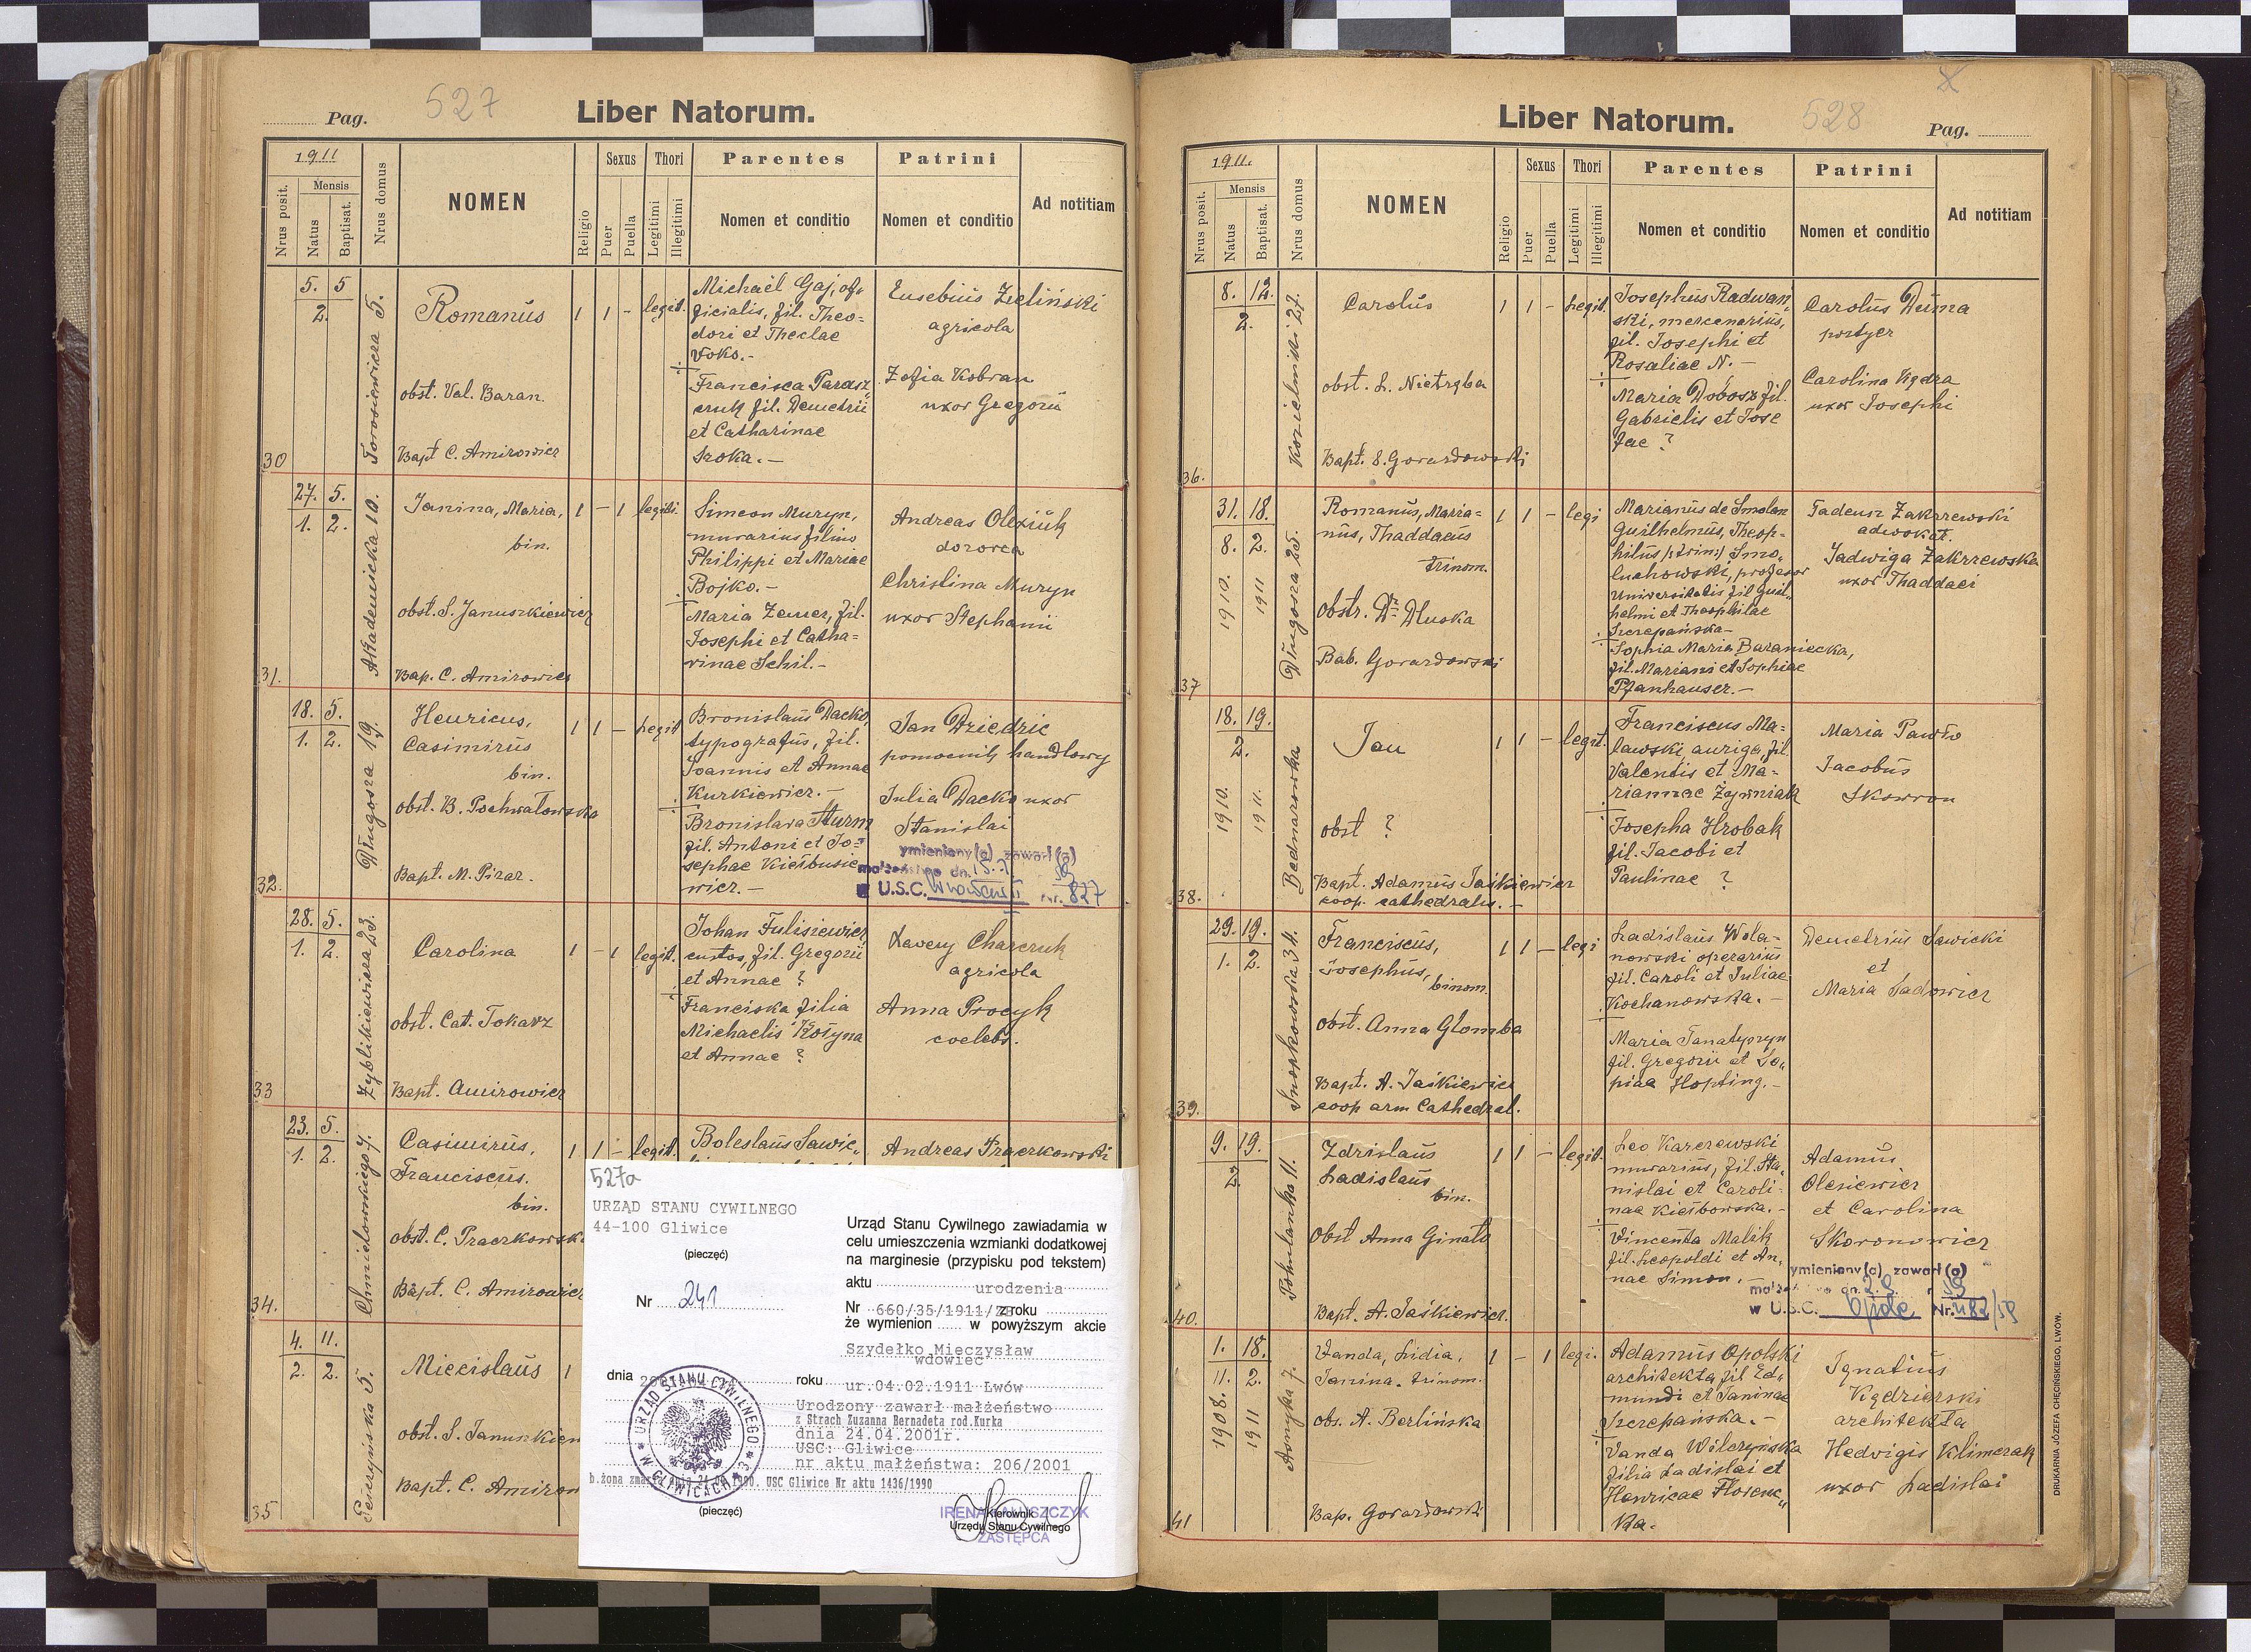 Pag. 527
Liber Natorum.
1911
Mensis
Nrus posit.
Natus
Baptisat.
Nrus domus
NOMEN
Religio
Sexus
Puer
Puella
Thori
Legitimi
Illegitimi
Parentes
Nomen et conditio
Patrini
Nomen et conditio
Ad notitiam
30
5. 5
2.
Torosiewicza 5.
Romanus
obst. Val. Baran.
Bapt C. Amirowicz
1 1 - legit.
Michaël Gaj, of,
ficialis, fil. Theo=
dori et Theclae
Woko.-
Francisca Parasz,
czuk fil. Demetrii
et Catharinae
Sroka.-
Eusebius Zieliński
agricola
Zofia Kobran
uxor Gregorii
31.
27. 5.
1. 2.
Akademicka 10.
Janina, Maria,
bin.
obst. S. Januszkiewicz
Bap. C. Amirowicz
1 - 1 legiti.
Simeon Muryn,
murarius filius
Philippi et Mariae
Bojko.-
Maria Zemer, fil.
Josephi et Catha=
rinae Schil.-
Andreas Olexiuk
dozorca
Christina Muryn
uxor Stephanii
32.
18. 5.
1. 2.
Długosza 19.
Henricus,
Casimirus
bin.
obst. B. Pochwatowska
Bapt. M. Pirar.
1 1 - legit
Bronislaus Dacko,
typografus, fil.
Joannis et Annae
Kurkiewicz.-
Bronislava Sturm
fil. Antoni et Jo=
sephae Kiełbusie
wicz.-
Jan Dziedzic
pomocnik handlowy
Julia Dacko uxor
Stanislai
ymieniony(a) zawarł(a)
małżeństwo dn. 15.
w U.S.C. Nr. 827
33
28. 5.
1. 2.
Zyblikiewicza 23.
Carolina
obst. Cat. Tokarz
Bapt. Amirowicz
1 - 1 legit.
Johan Fulisiewicz
custos, fil. Gregorii
et Annae ?
Franciska filia
Michaelis Kotyna
et Annae ?
Xavery Charczuk
agricola
Anna Procyk
coelebs.
34.
23. 5.
1. 2.
Chmielowskiego 7.
Casimirus,
Franciscus.
bin.
obst. C. Praczkowsk
Bapt. C. Amirowicz
1 1 - legit.
Boleslaus Sawic,,
Andreas Praczkowski
35
4. 11.
2. 2.
5.
Miecislaus 1
obst. S. Januszkiew
Bapt. C. Amirow
527a
URZĄD STANU CYWILNEGO
44-100 Gliwice
(pieczęć)
Nr 241
Urząd Stanu Cywilnego zawiadamia w
celu umieszczenia wzmianki dodatkowej
na marginesie (przypisku pod tekstem)
aktu urodzenia
Nr 660/35/1911/ZB z roku
że wymienion w powyższym akcie
Szydełko Mieczysław
wdowiec
dnia roku ur.04.02.1911 Lwów
Urodzony zawarł małżeństwo
z Strach Zuzanna Bernadeta rod.Kurka
dnia 24.04.2001r.
USC: Gliwice
nr aktu małżeństwa: 206/2001
b.żona zmarła dnia 1990. USC Gliwice Nr aktu 1436/1990
URZĄD STANU CYWILNEGO W GLIWICACH 3
(pieczęć)
Kierownik
Urzędu Stanu Cywilnego
ZASTĘPCA
Liber Natorum.
528
Pag.
X
1911.
Mensis
Nrus posit.
Natus
Baptisat.
Nrus domus
NOMEN
Religio
Sexus
Puer
Puella
Thori
Legitimi
Illegitimi
Parentes
Nomen et conditio
Patrini
Nomen et conditio
Ad notitiam
36.
8. 12.
2.
27.
Carolus
obst. L. Nietrzba
Bapt. S. Gorazdowski
1 1 - legit.
Josephus Radwań,
ski, mercenarius,
fil. Josephi et
Rosaliae N.-
Maria Dobosz fil.
Gabrielis et Jose
fae ?
Carolus Duma
portyer
Carolina Kędra
uxor Josephi
37
31. 18.
8. 2.
1910. 1911
Długosza 25.
Romanus, Maria=
nus, Thaddaeus
trinom.
obstr. Dr Dłuska
Bab. Gorazdowski
1 1 - legi
Marianus de Smolan
Guilhelmus, Theop-
hilus /:trin:/ Smo,
luchowski, profesor
Universitatis fil Guil,,
helmi et Theophilae
Szczepańska-
Sophia Maria Baraniecka,
fil. Mariani et Sophiae
Pfanhauser.-
Tadeusz Zakrzewski
adwokat.
Jadwiga Zakrzewska
uxor Thaddaei
38.
18. 19.
2.
1910. 1911.
Bednarowka
Jan
obst ?
Bapt. Adamus Jaśkiewicz
coop. cathedralis.-
1 1 - legit.
Franciscus Ma=
lawski auriga, fil.
Valentis et Ma=
riannae Żywniak
Josepha Hrobak
fil. Jacobi et
Paulinae ?
Maria Pawło
Jacobus
Skowron
39.
29. 19.
1. 2.
Snopkowska 34.
Franciscus,
Josephus,
binom.
obst. Anna Głomba
Bapt. A. Jaśkiewicz
coop arm Cathedral.
1 1 - legi
Ladislaus Wola=
nowski operarius
fil. Caroli et Juliae
Kochanowska.-
Maria Tanatypryn
fil. Gregorii et Zo,,
piae Hopting.-
Demetrius Sawicki
et
Maria Sadowicz
40.
9. 19.
2.
Pohulanka 11.
Zdzislaus
Ladislaus
bin.
Obst Anna Ginato
Bapt. A. Jaśkiewicz.
1 1 - legit.
Leo Karczewski
murarius, fil. Sta,
nislai et Caroli=
nae Kiełbowska.-
Vincenta Malik
fil. Leopoldi et An,
nae Simon.-
Adamus
Olesiewicz
et Carolina
Skoronowicz
ymieniony(a) zawarł(a)
w U.S.C. Opole Nr. 482/59
41
1. 18.
11. 2.
1908. 1911
Asnyka 7.
Vanda, Lidia,
Janina. trinom.
obs. A. Berlińska
Bap. Gorazdowski
1 - 1 legi.
Adamus Opolski
architekta, fil Ed,,
mundi et Janinae
Szczepańska.-
Vanda Wilczyńska
filia Ladislai et
Henricae Hosenc,,
ka.
Ignatius
Kędzierski
architekta
Hedvigis Klimczak
uxor Ladislai
DRUKARNIA JÓZEFA CHĘCIŃSKIEGO, LWÓW.